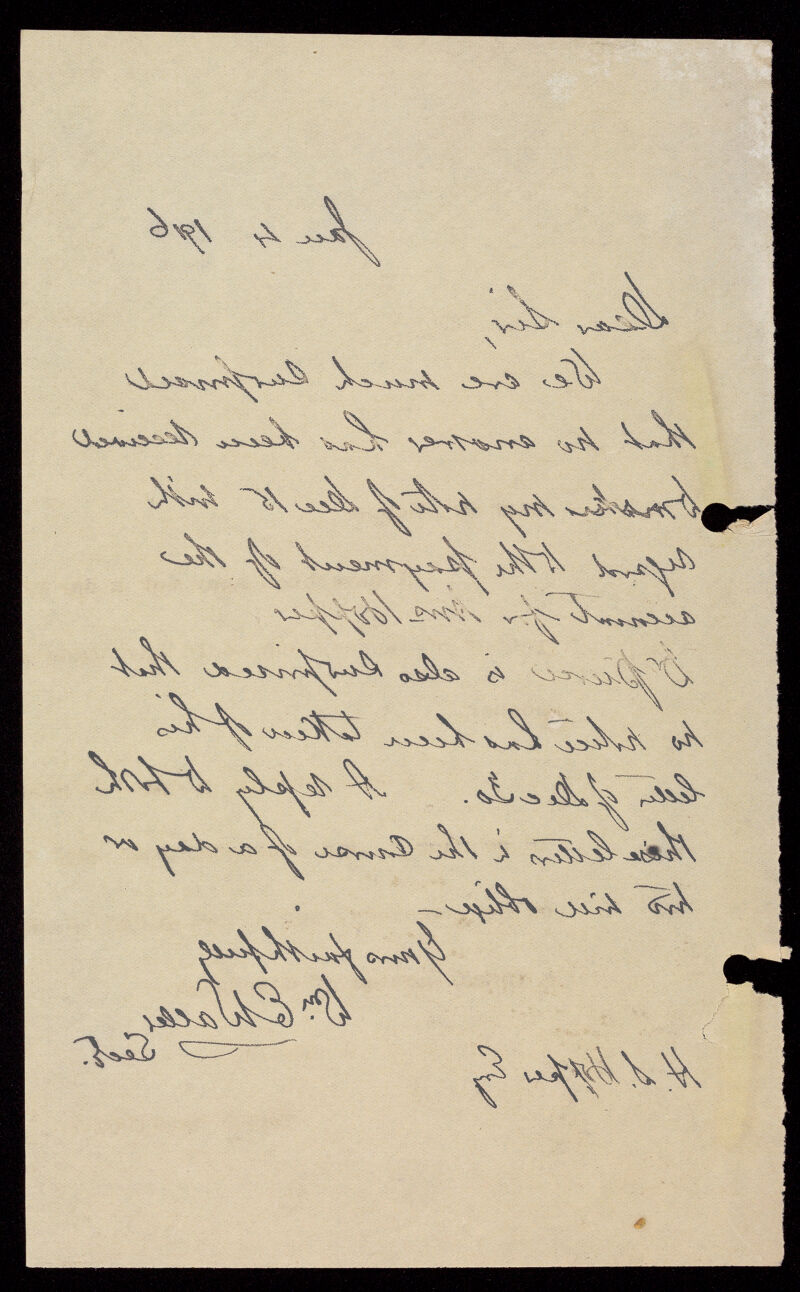 Jan 4 1916
Dear Sir,
We are much surprised
that no answer has been received
to my note of Dec 15 with
regard to the payment of the
account for Mrs Hopper
Dr is also surprised that
no notice has been taken of his
letter of Dec 30. A reply to both
these letters in the course of a day or
two will oblige —
Yours faithfully
Wm. E Waller
Sect.
H. S. Hopper Esq